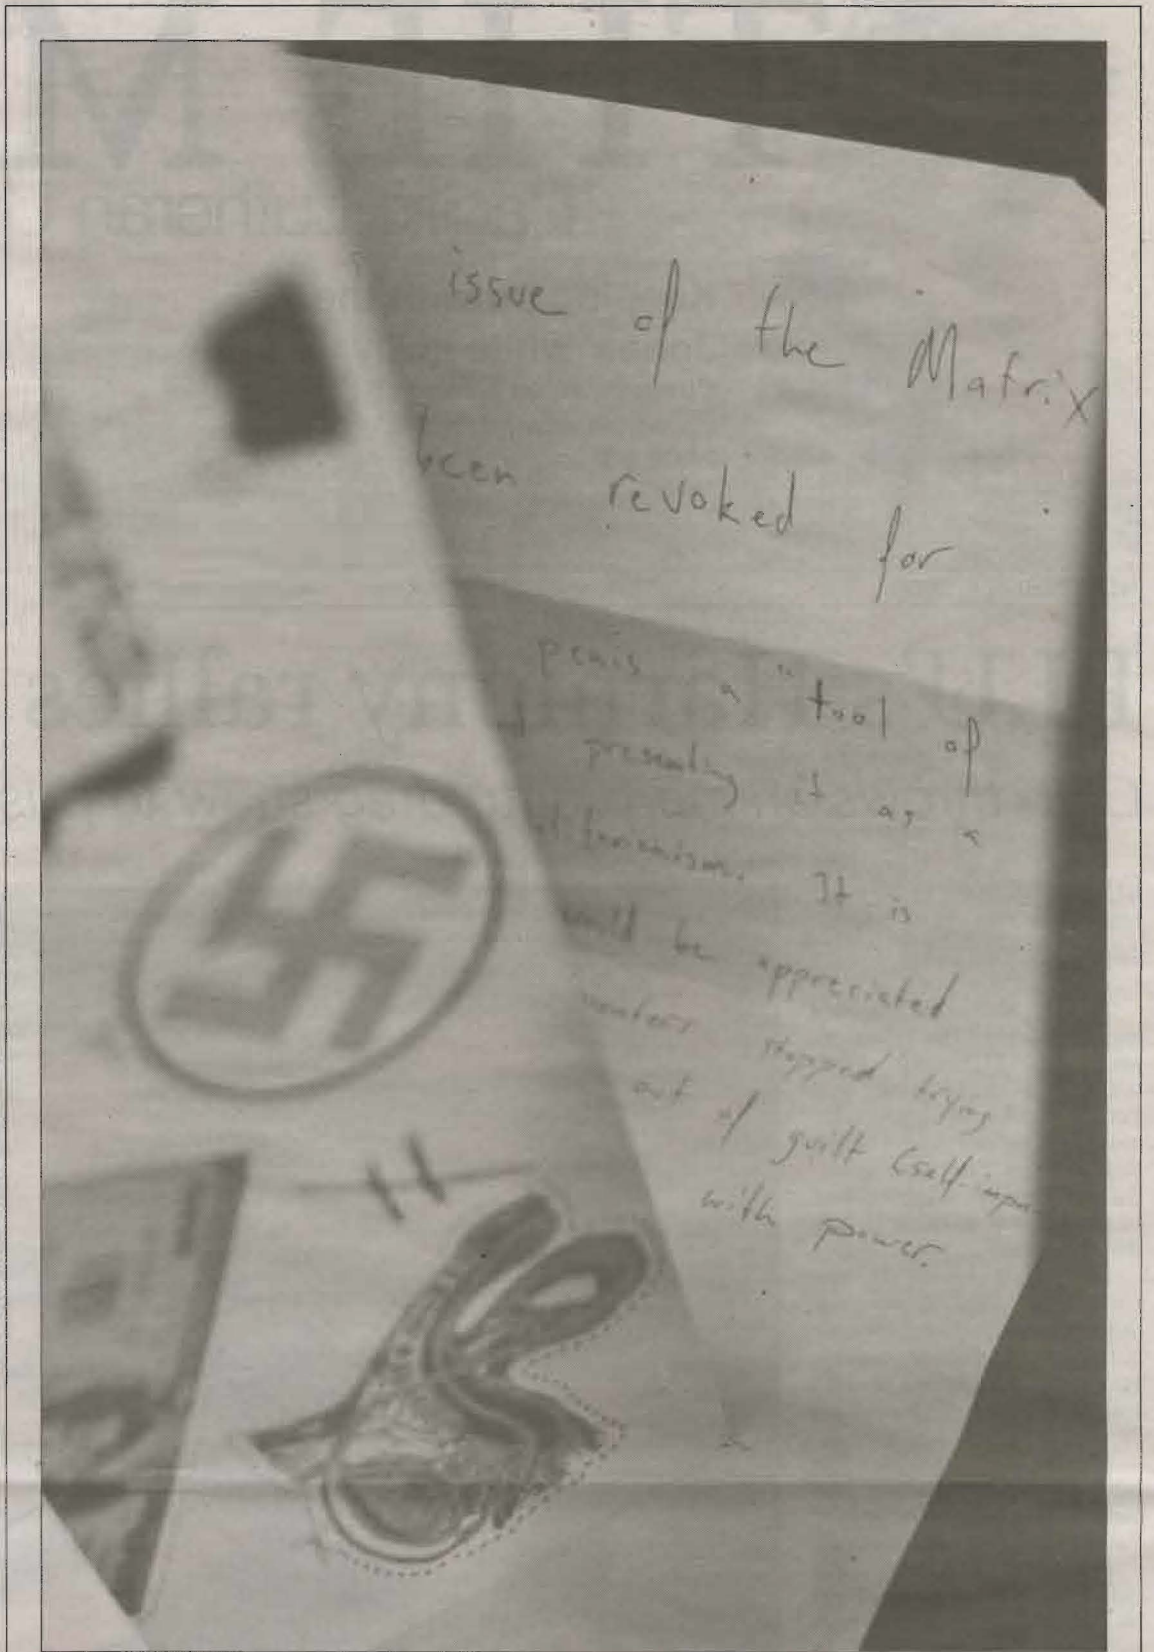 issue of the Matrix
been revoked for
penis a "tool of
presenting it as a
It is
be appreciated
stopped trying
out of guilt (self-impo
with power.